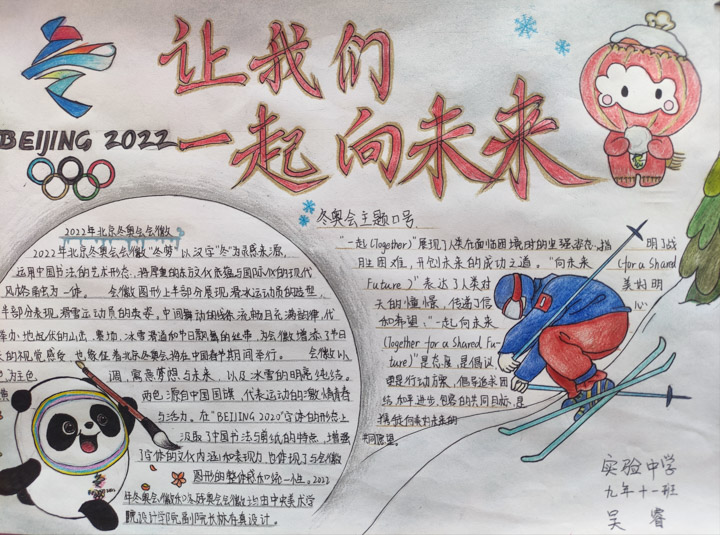 让我们
一起向未来
BEIJING 2022
2022年北京冬奥会会徽
2022年北京冬奥会会徽"冬梦"以汉字"冬"为灵感来源,
运用中国书法的艺术形态,将厚重的东方文化底蕴与国际化的现代
风格融为一体。 会徽图形上半部分展现滑冰运动员的造型,
半部分表现滑雪运动员的英姿。中间舞动的线条流畅且充满韵律,代
举办地起伏的山峦、赛场、冰雪滑道和节日飘舞的丝带,为会徽增添了节日
的视觉感受,也象征着北京冬奥会将在中国春节期间举行。 会徽以
色为主色 调,寓意梦想与未来,以及冰雪的明亮纯洁。
两色源自中国国旗,代表运动的激情青春
与活力。在"BEIJING 2020"字体的形态上
汲取了中国书法与剪纸的特点,增强
了字体的文化内涵和表现力,也体现了与会徽
图形的整体感和统一性。2022
年冬奥会会徽和冬残奥会会徽均由中央美术学
院设计学院副院长林存真设计。
冬奥会主题口号
"一起(Together)"展现了人类在面临困境时的坚强姿态,指 明了战
胜困难,开创未来的成功之道。"向未来 (for a Shared
Future)"表达了人类对 美好明
天的憧憬,传递了信 心
和希望。"一起向未来
(Together for a Shared Fu-
ture)"是态度,是倡议,
更是行动方案,倡导追求团
结、和平、进步、包容的共同目标,是
携手走向美好未来的
共同愿望。
实验中学
九年十一班
吴睿